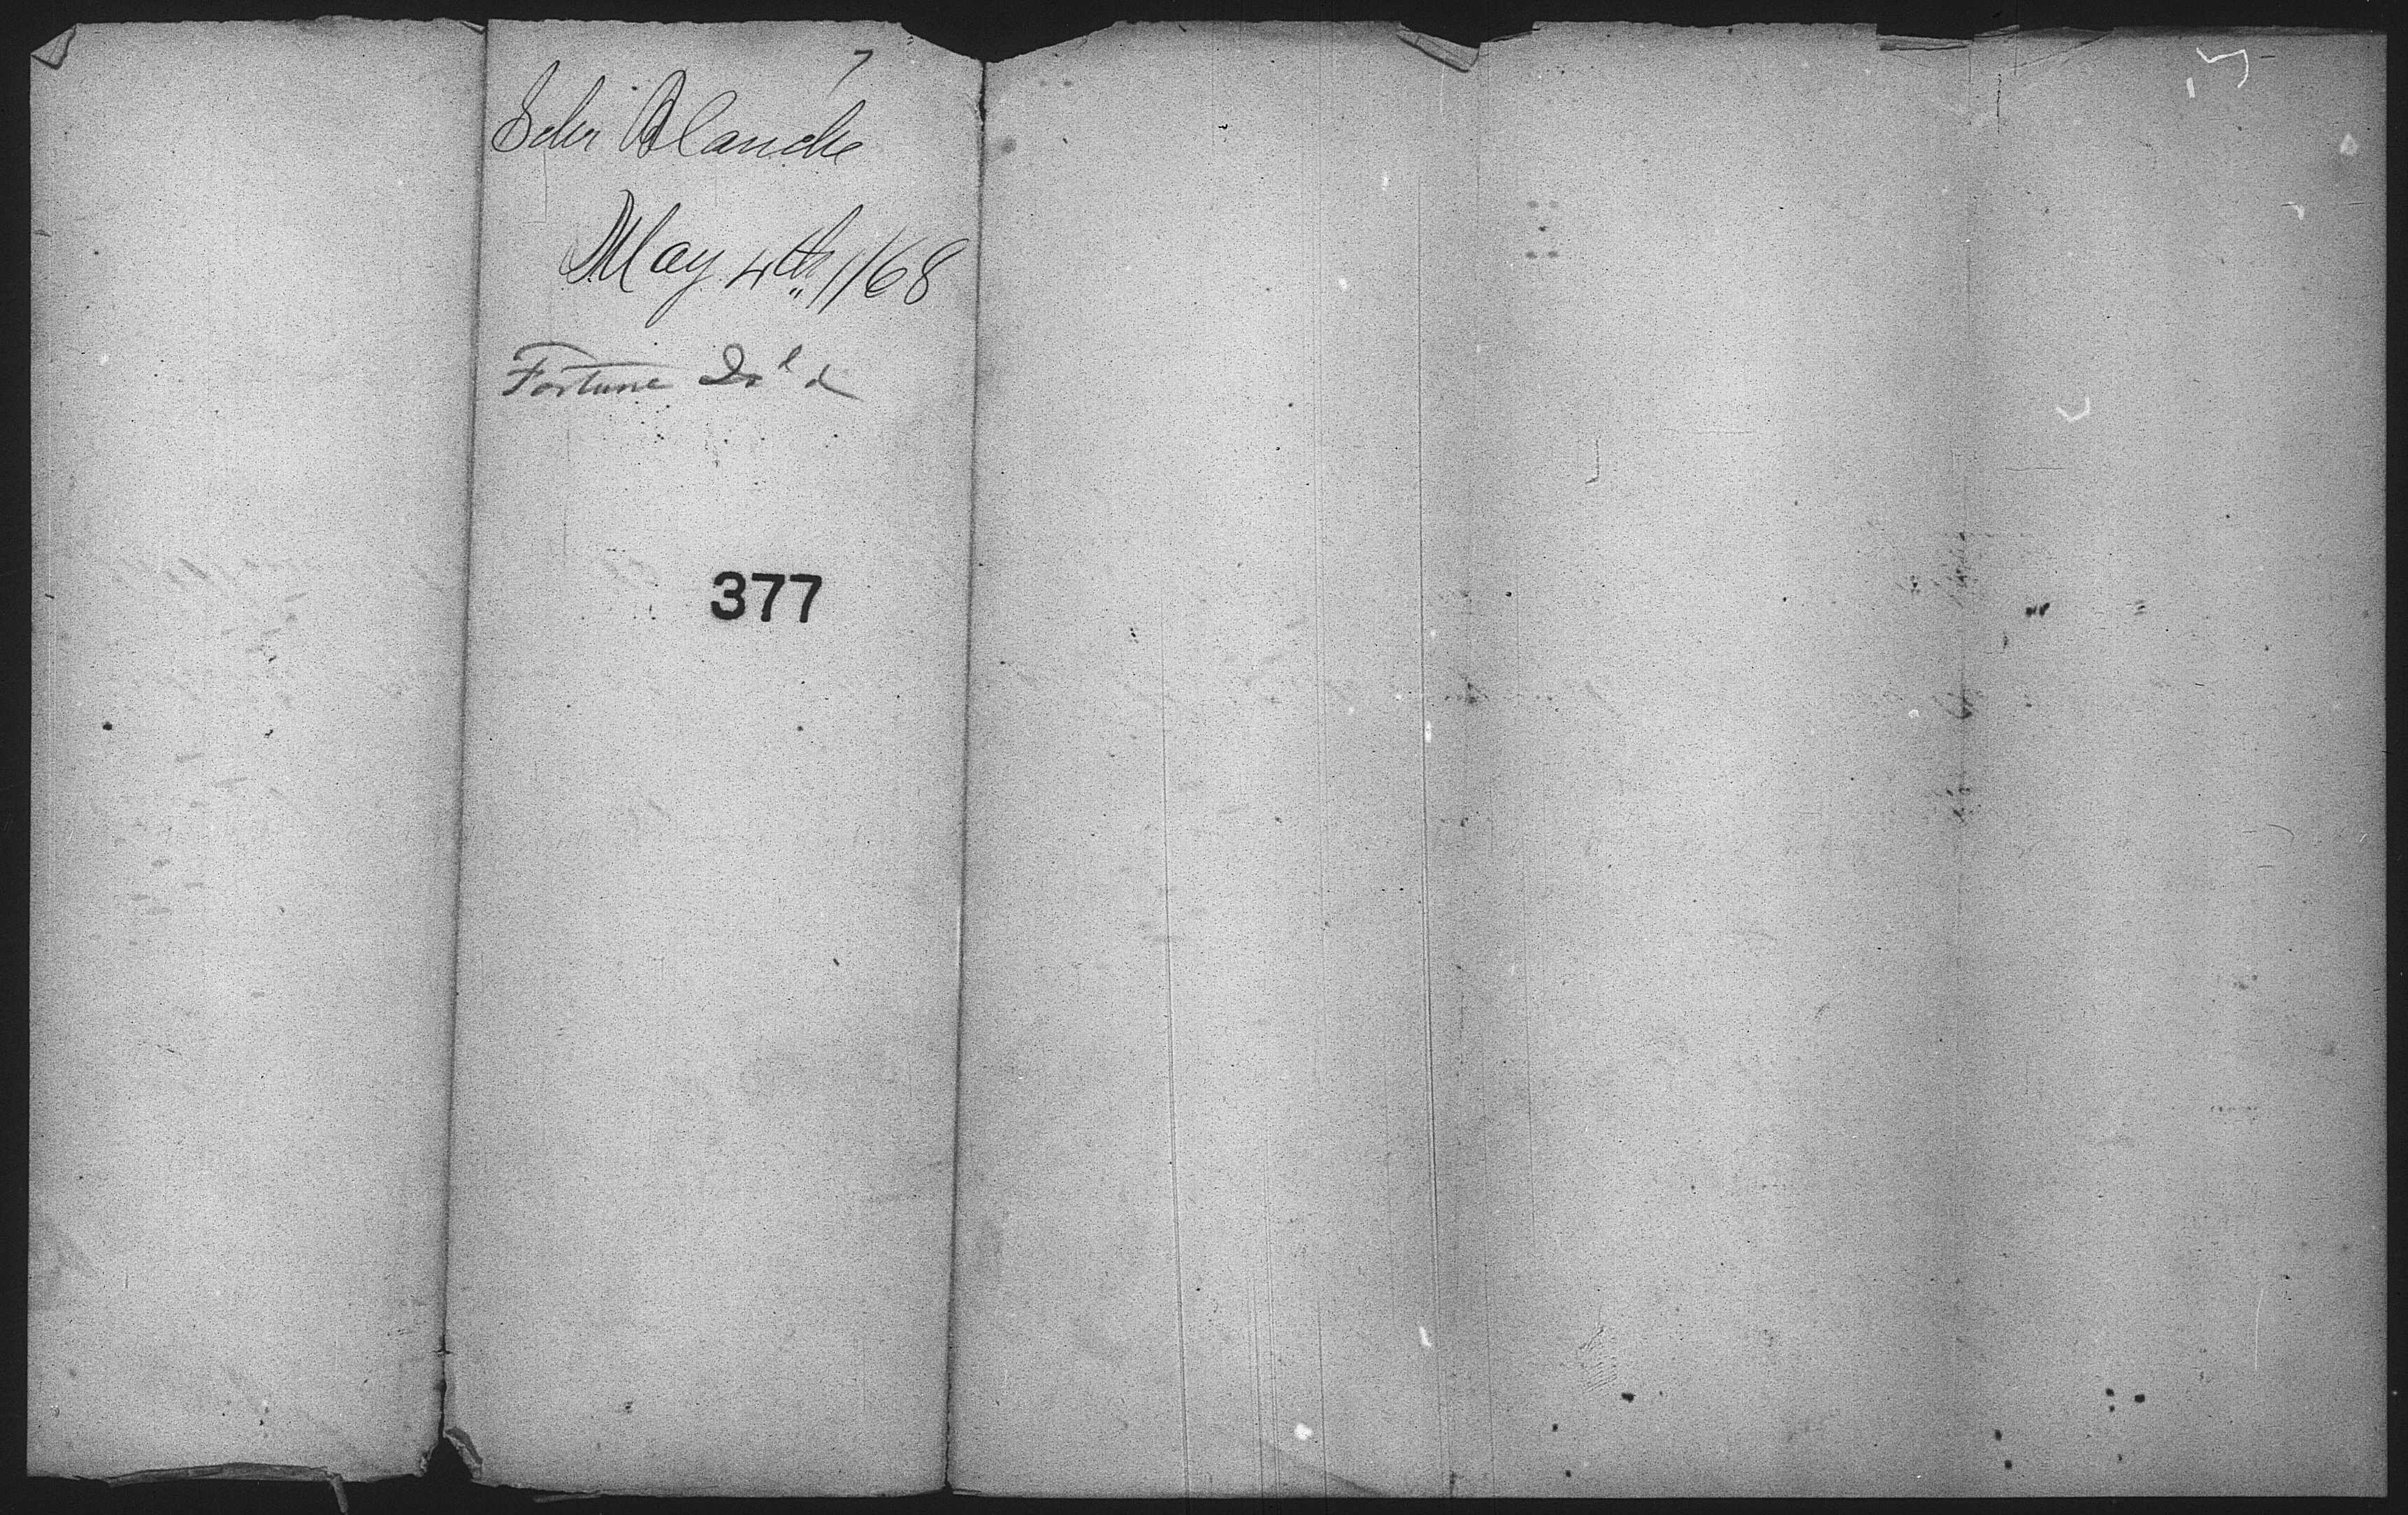 7
Schr Blanche
May 4th /68
Fortune Isl d
377